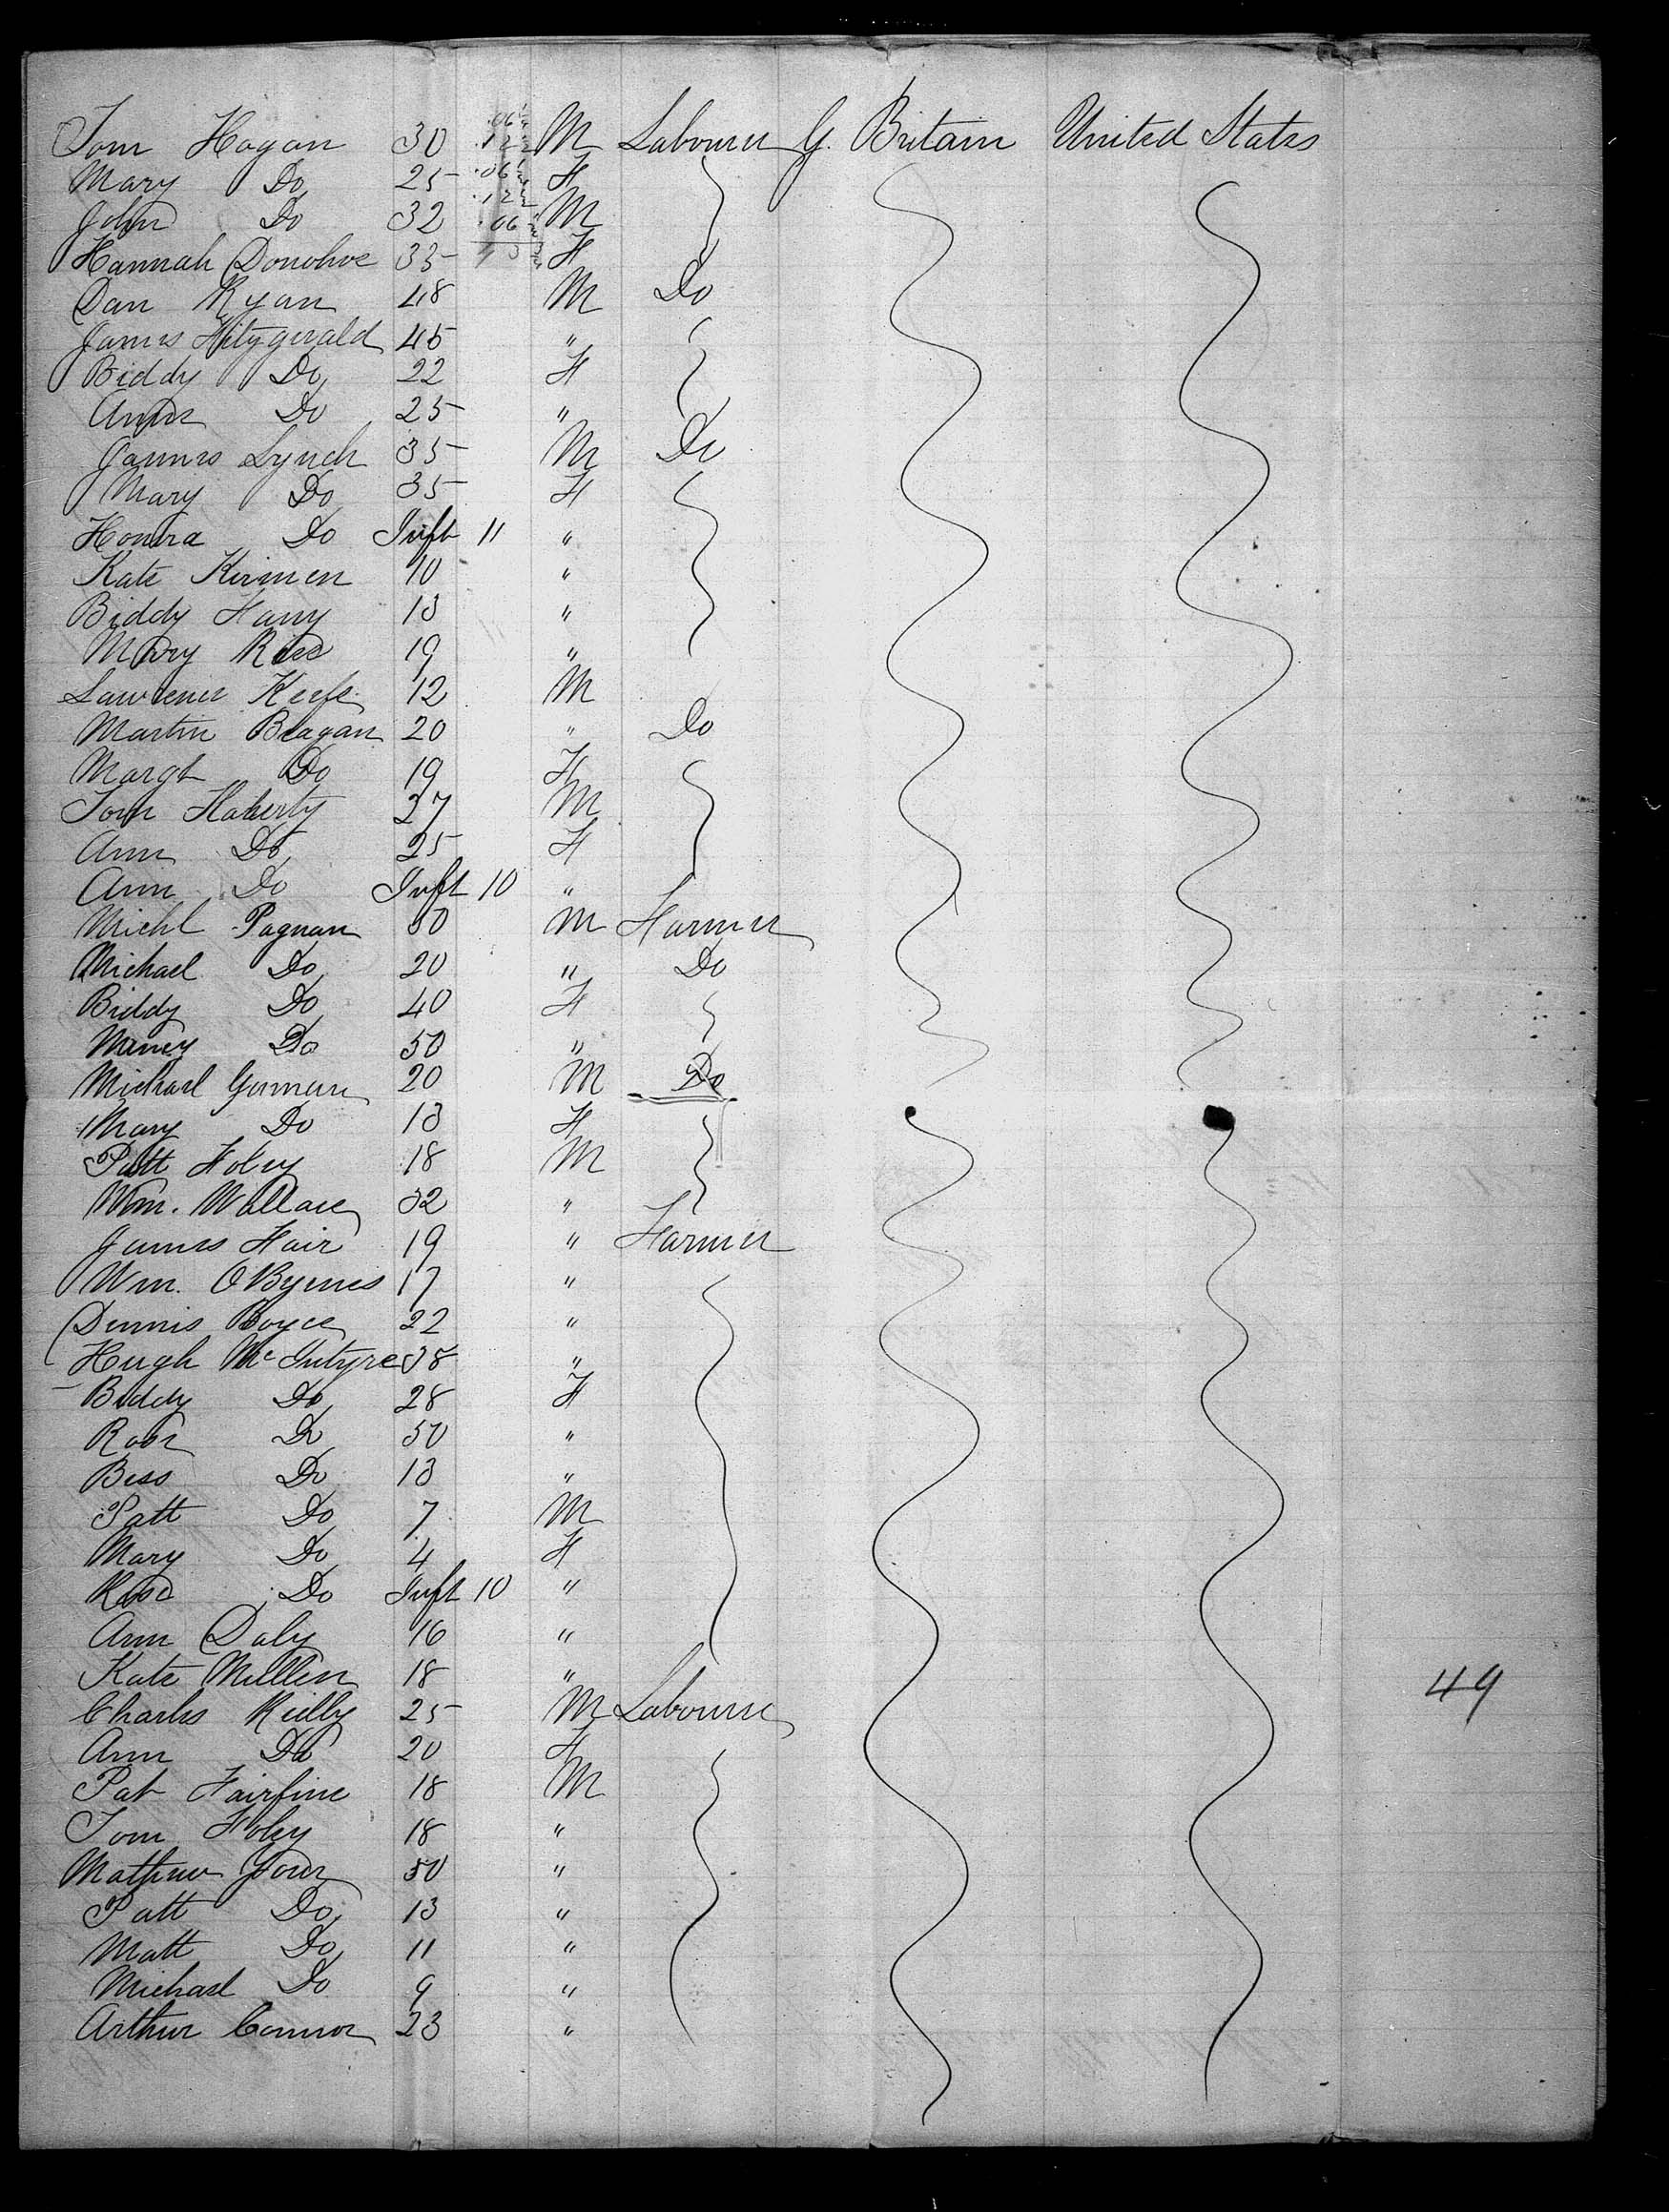 Tom Hogan 30 M Labourer G. Britain United States
Mary Do 25 F
John Do 32 M
Hannah Donohoe 35 F
Dan Ryan 48 M Do
James Fitzgerald 45 "
Biddy Do 22 F
Anne Do 25 "
James Lynch 35 M Do
Mary Do 35 F
Honora Do Inft 11 "
Kate Kirmen 10 "
Biddy Harry 13 "
Mary 19 "
Lawrence Keefe 12 M
Martin Beagan 20 " Do
Margt Do 19 F
Tom Flaherty 27 M
Ann Do 25 F
Ann Do Inft 10 "
Michl Pagnan 50 M Farmer
Michael Do 20 " Do
Biddy Do 40 F
Nancy Do 50 "
Michael 20 M Do
Mary Do 13 F
Patt Foley 18 M
Wm. Wallace 32 "
James Hair 19 " Farmer
Wm. OByrnes 17 "
Dennis Boyce 22 "
Hugh McIntyre 38 "
Biddy Do 28 F
Rose Do 50 "
Bess Do 13 "
Patt Do 7 M
Mary Do 4 F
Rose Do Inft 10 "
Ann Daly 16 "
Kate Mullen 18 "
49
Charles Reilly 25 M Labourer
Ann Do 20 F
Pat Fairfine 18 M
Tom Foley 18 "
Mathew 50 "
Patt Do 13 "
Matt Do 11 "
Michael Do 9 "
Arthur Connor 23 "